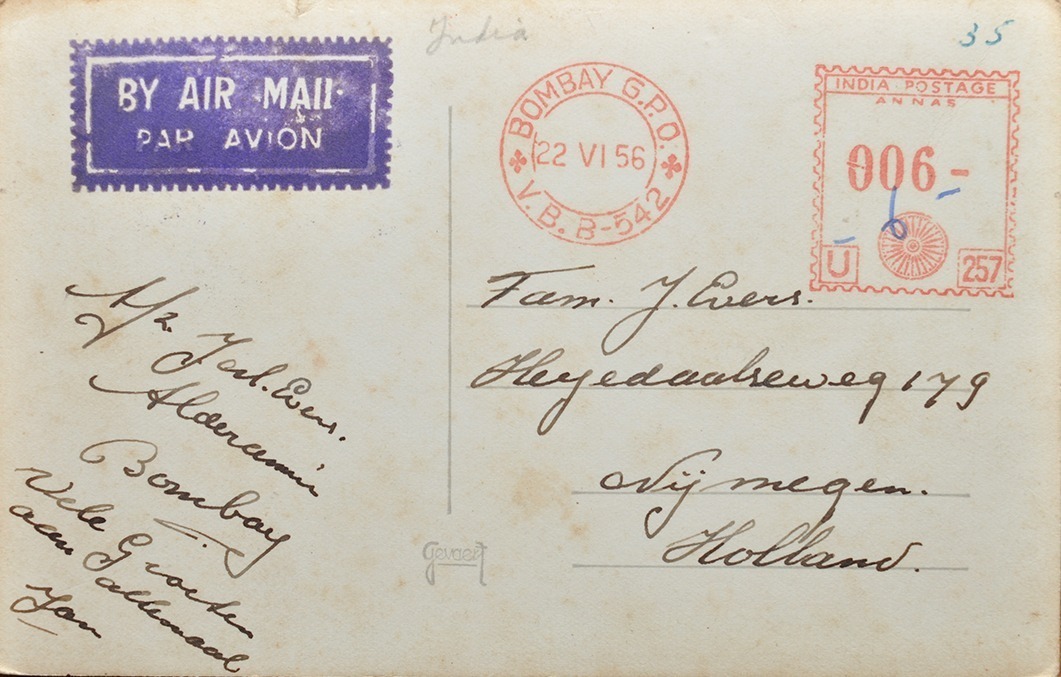 India
35
BY AIR MAIL
PAR AVION
BOMBAY G.P.O.
22 VI 56
V.B. B-542
INDIA POSTAGE
ANNAS
006-
U
257
Afz. Joh. Evers.
Alderamin
Bombay
Vele Groeten
aan allemaal
Jan
Fam. J. Evers.
Heyedaalseweg 179
Nijmegen.
Holland.
Gevaert